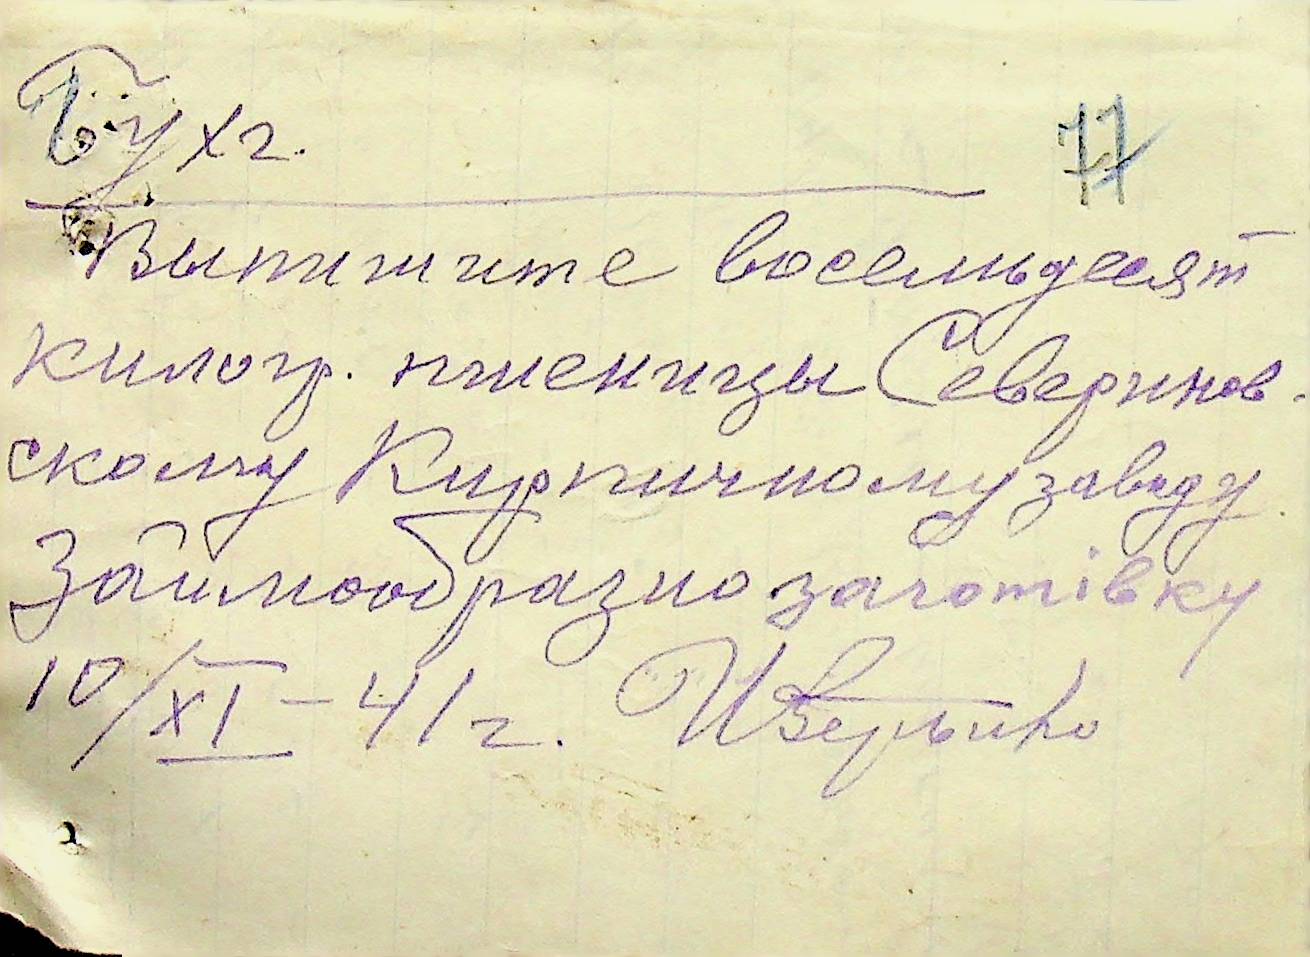 Бухг.
77
Выпишите восемьдесят
килогр. пшеницы Северинов-
скому Кирпичному заводу
Займообразно заготівку
10/XI – 41 г.